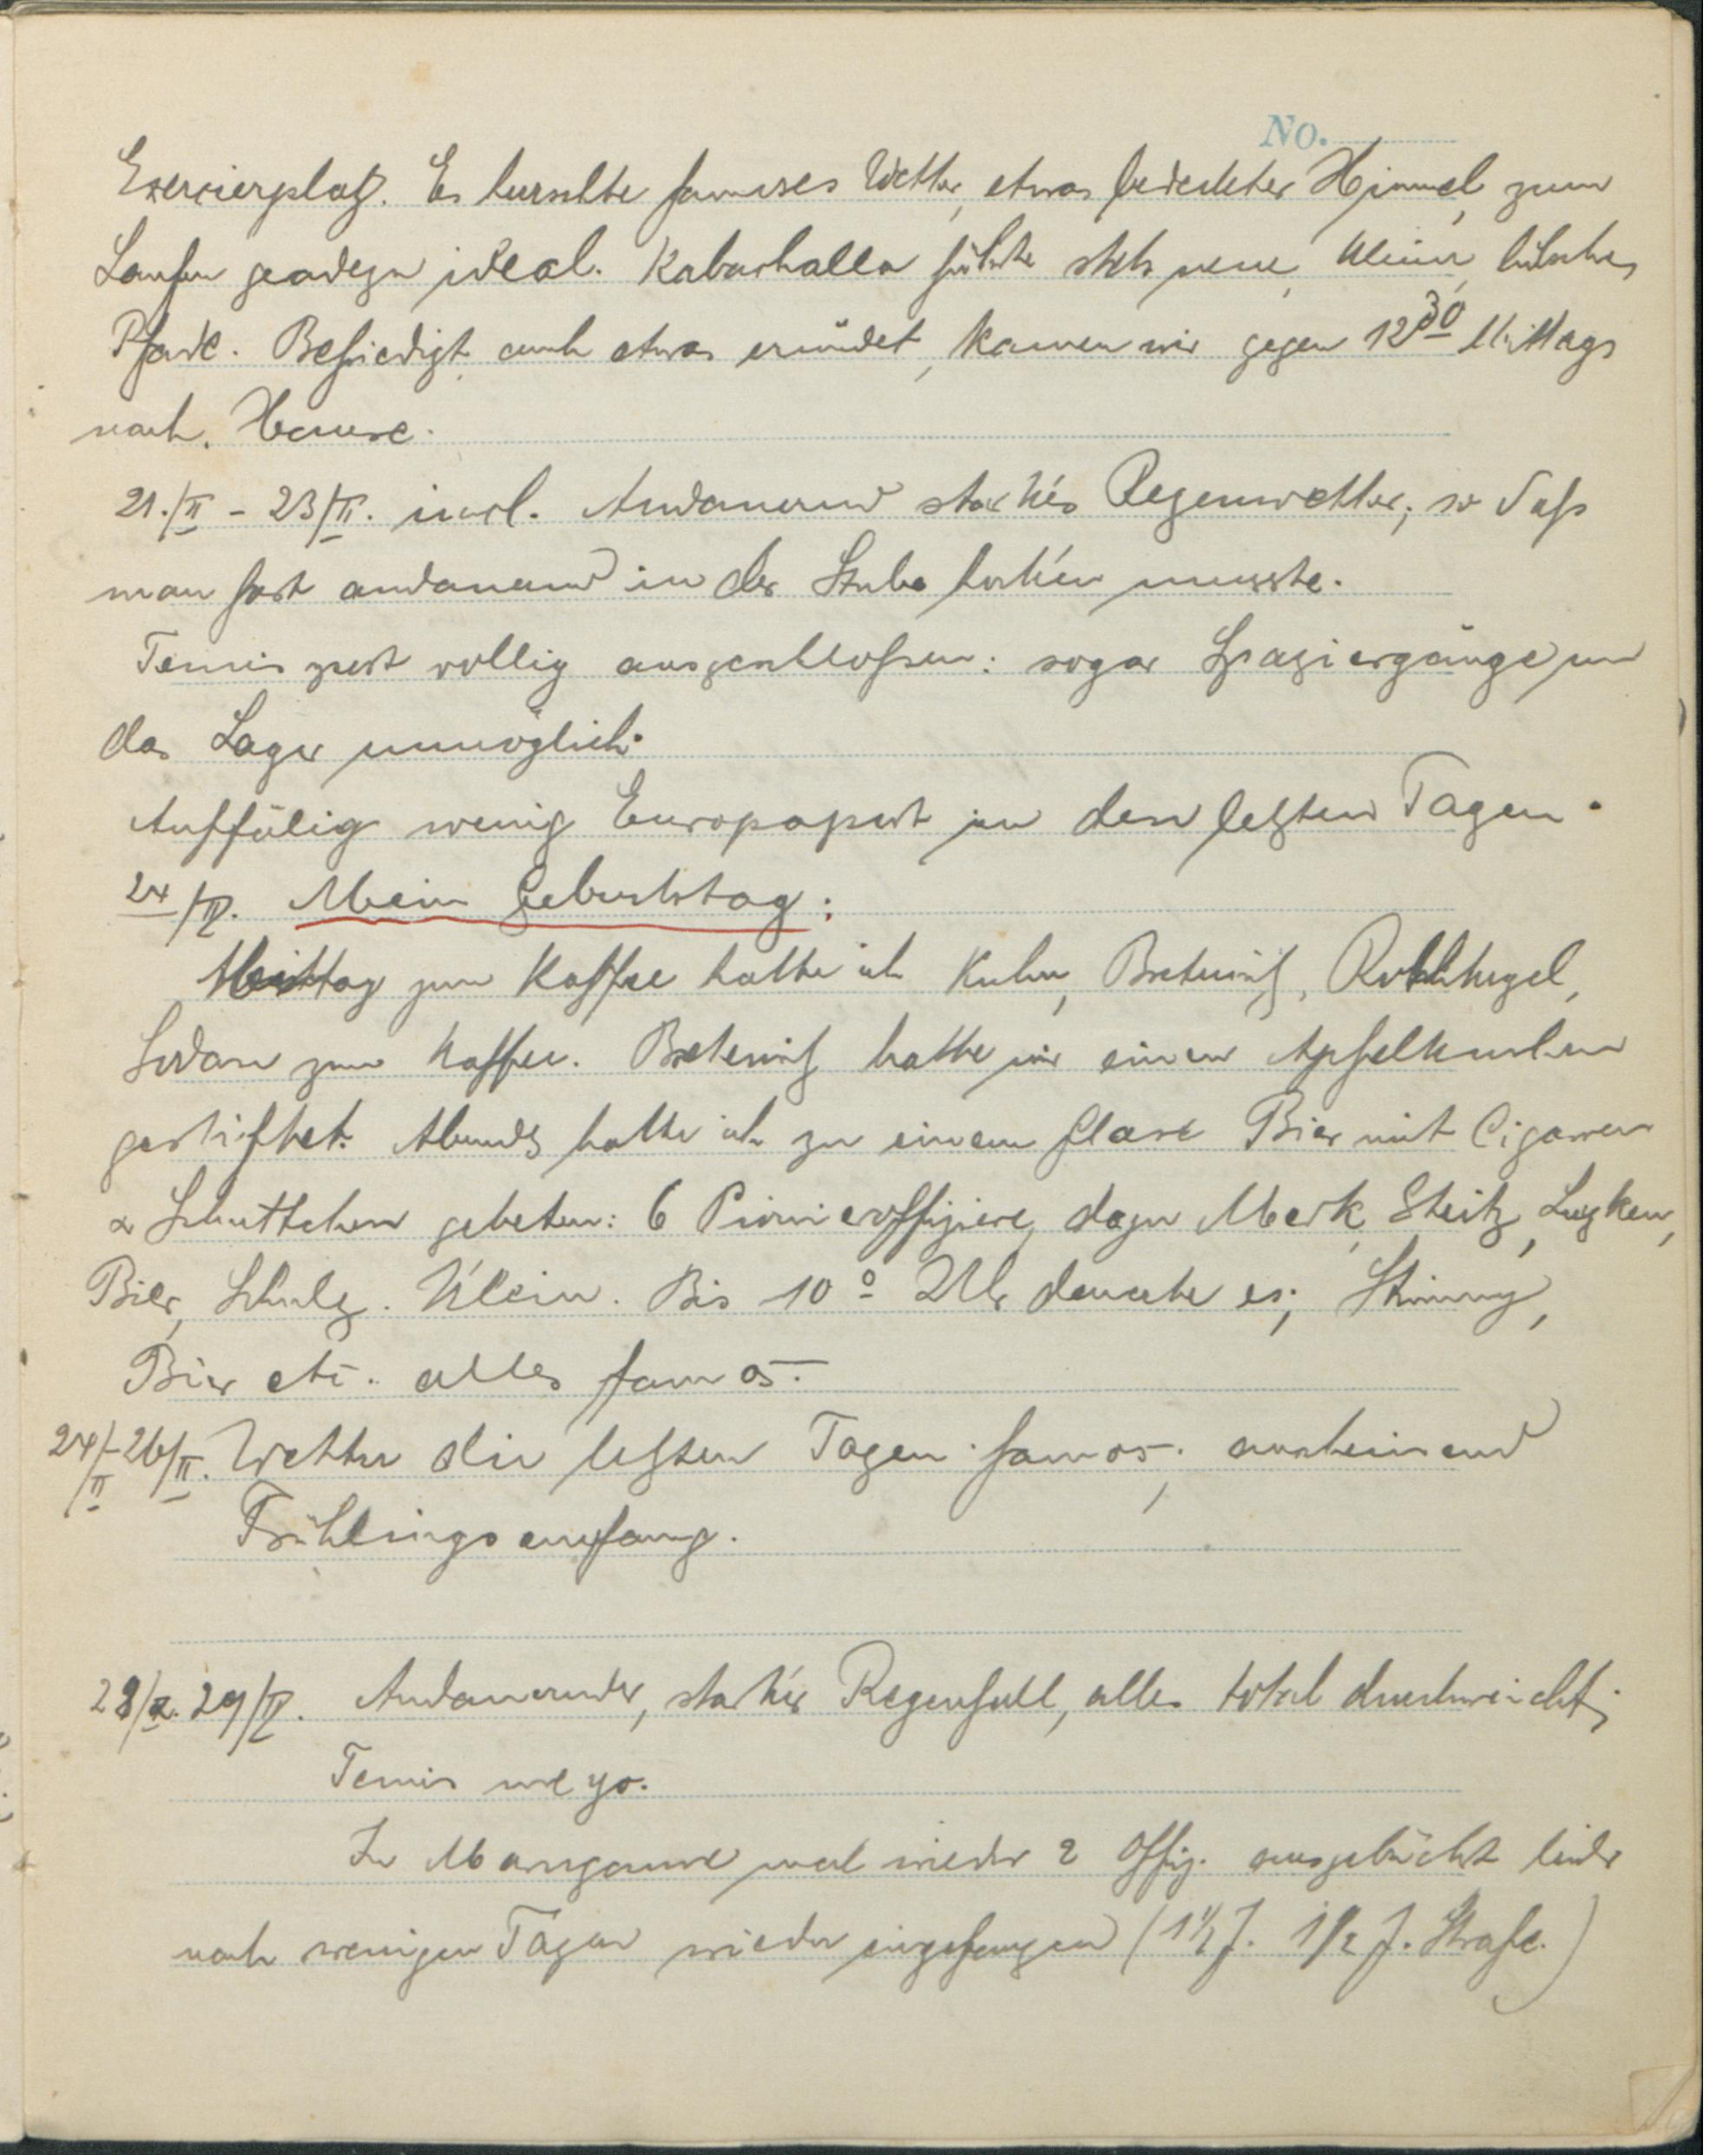 No.
Exercierplatz. Es herrschte famoses Wetter, etwas bedeckter Himmel, zum
Laufen geradezu ideal. führte stets neue, kleine, hübsche,
Pfade. Befriedigt, auch etwas ermüdet, kamen wir gegen 12³⁰ Mittags
nach Hause.
21./II - 23/II. incl. Andauernd starkes Regenwetter; so dass
man fast andauernd in der Stube hocken musste.
Tennis völlig ausgeschlossen: sogar Spaziergänge um
das Lager unmöglich.
Auffällig wenig Europapost in den letzten Tagen.
24/II. Mein Geburtstag:
Mittag zum Kaffee hatte ich Kuhn, Rothkegel,
Sodan zum Kaffee. hatte mir einen Apfelkuchen
gestiftet. Abends hatte ich zu einem Glase Bier mit Cigarren
& Schnittchen gebeten: 6 Pionieroffiziere, dazu Merk, Steitz, Luyken,
Bier, Schulz. Klein. Bis 10⁰ Uhr dauerte es; Stimmung,
Bier etc. alles famos.
24/II-26/II. Wetter die letzten Tagen famos; anscheinend
Frühlingsanfang.
28/II. 29/II. Andauernder, starker Regenfall, alles total durchweicht;
Tennis
In mal wieder 2 Offiz. ausgebückst leider
nach wenigen Tagen wieder eingefangen (1½ J. 1½ J. Strafe.)